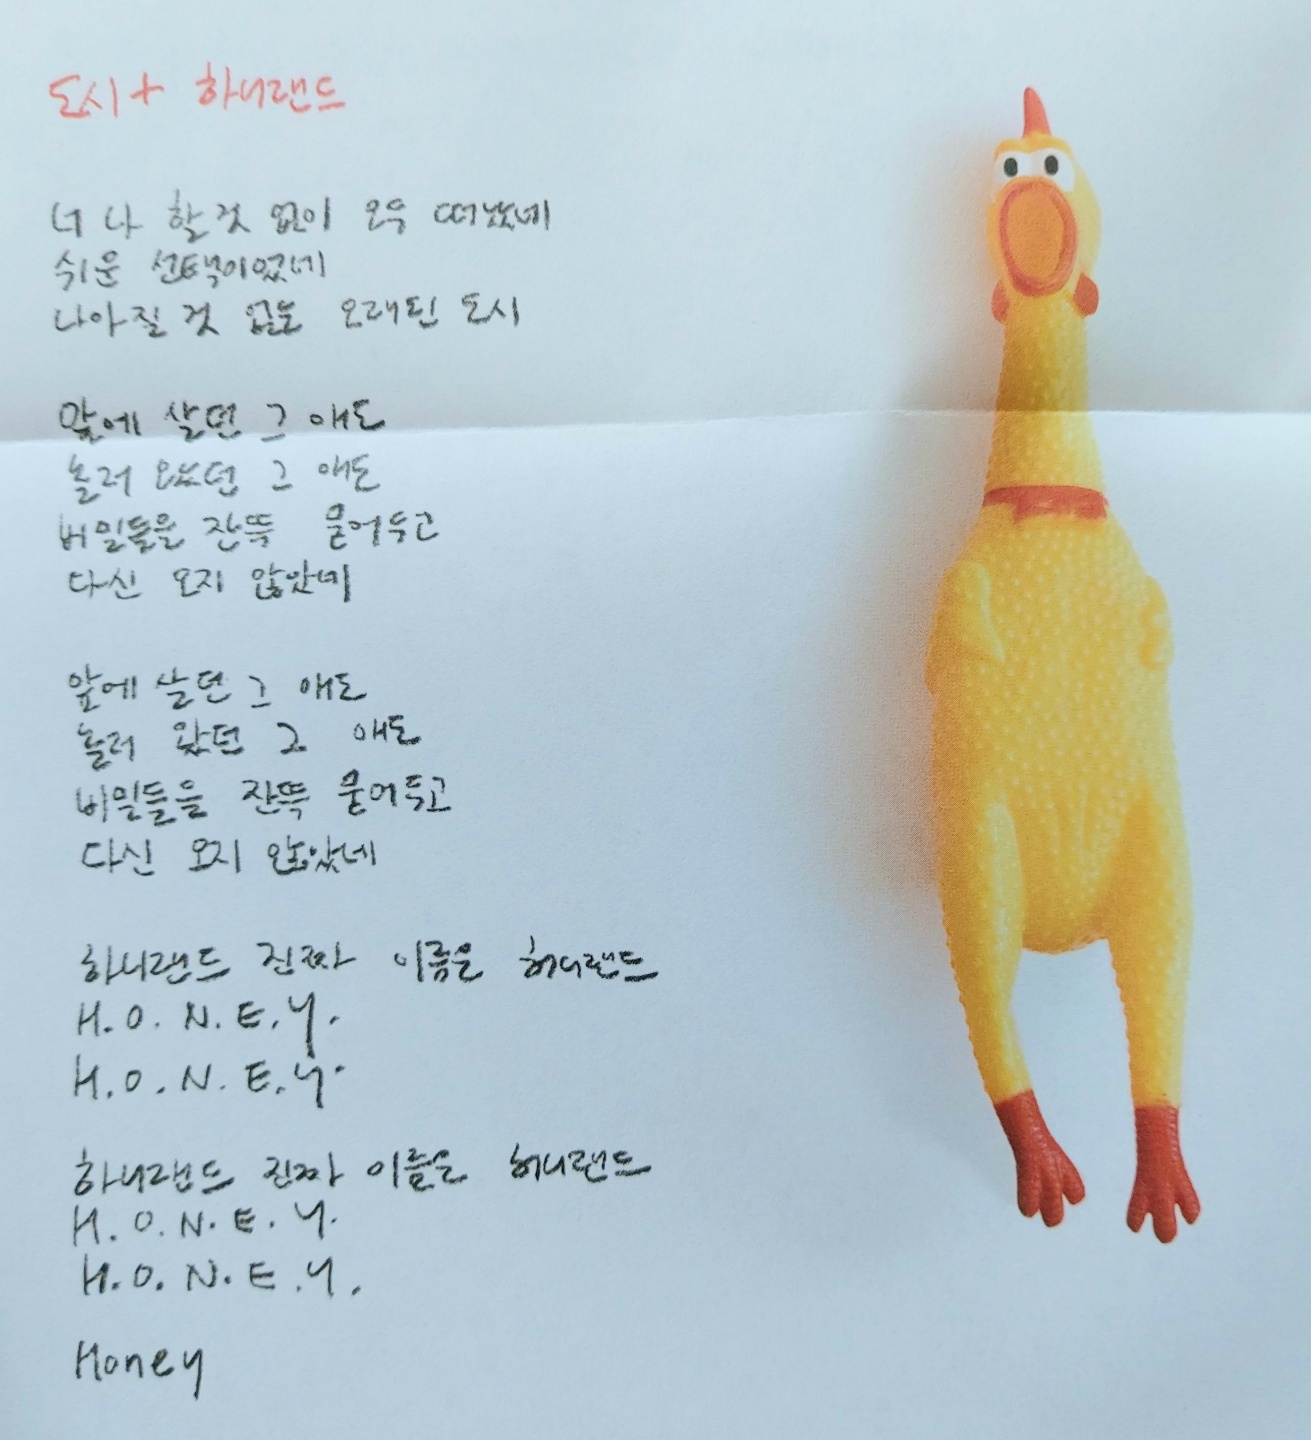 도시+ 하니랜드
너 나 할 것 없이 모두 떠났네
쉬운 선택이었네
나아질 것 없는 오래된 도시
앞에 살던 그 애도
놀러 왔던 그 애도
비밀들을 잔뜩 묻어두고
다신 오지 않았네
앞에 살던 그 애도
놀러 왔던 그 애도
비밀들을 잔뜩 묻어두고
다신 오지 않았네
하니랜드 진짜 이름은 허니랜드
H.O.N.E.Y.
H.O.N.E.Y.
하니랜드 진짜 이름은 허니랜드
H.O.N.E.Y.
H.O.N.E.Y.
Honey